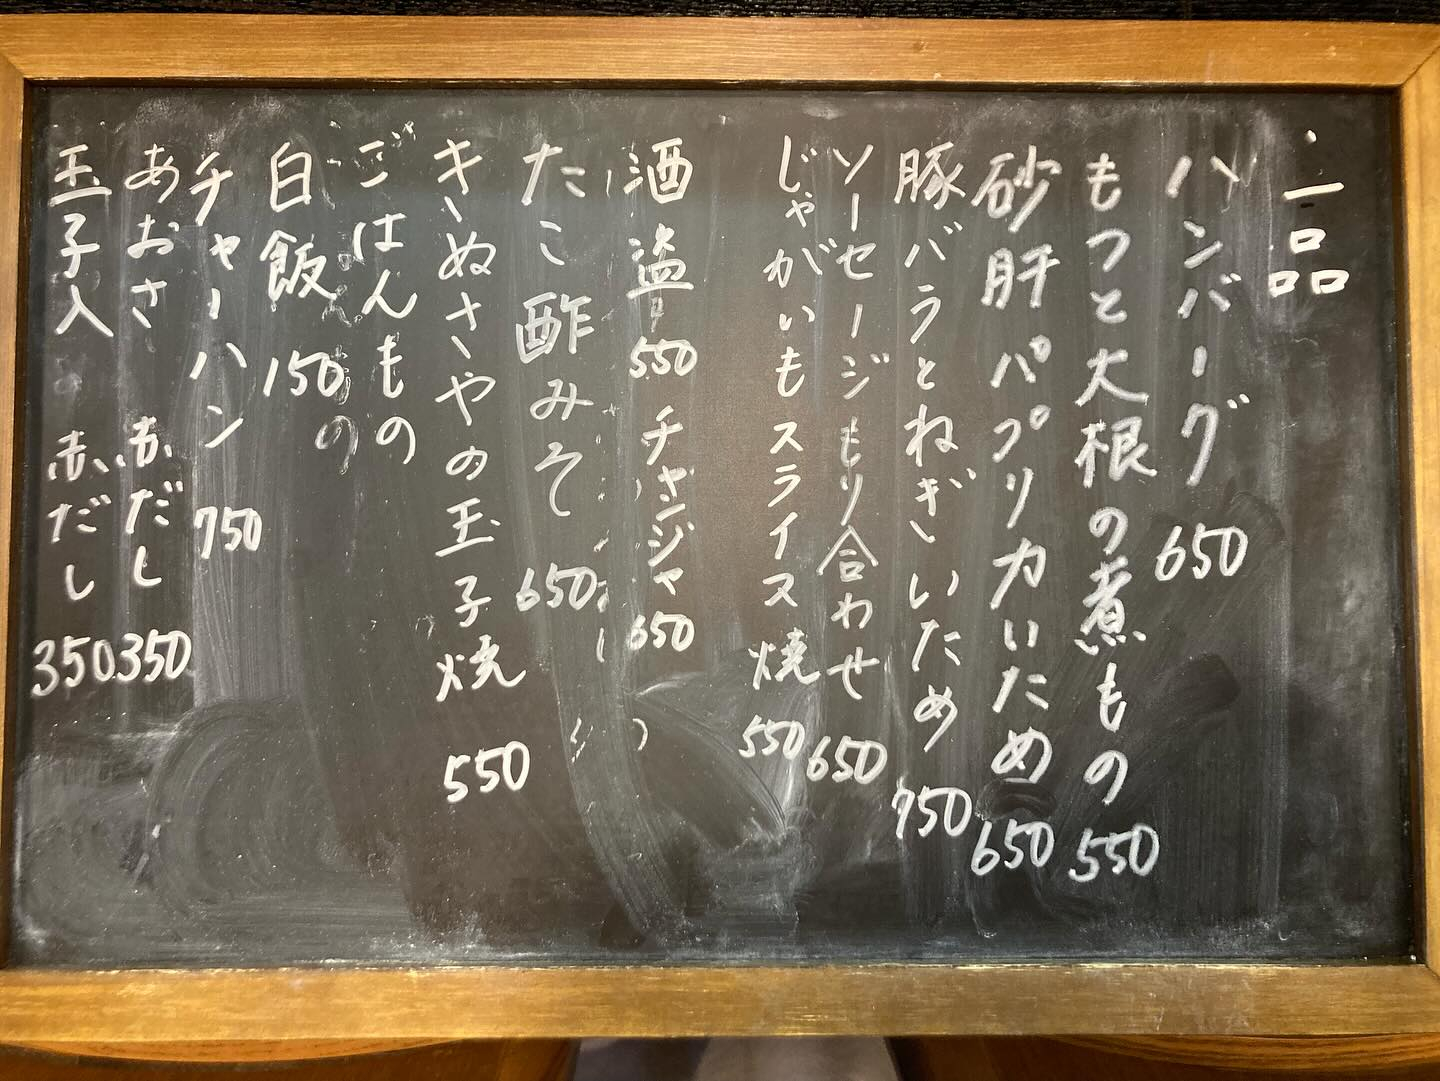 ・一品
ハンバーグ 650
もつと大根の煮もの 550
砂肝パプリカいため 650
豚バラとねぎいため 750
ソーセージもり合わせ 650
じゃがいもスライス焼 550
酒盗 550 チャンジャ 650
たこ酢みそ 650
きぬさやの玉子焼 550
ごはんもの
白飯 150
チャーハン 750
あおさ 赤だし 350
玉子入 赤だし 350